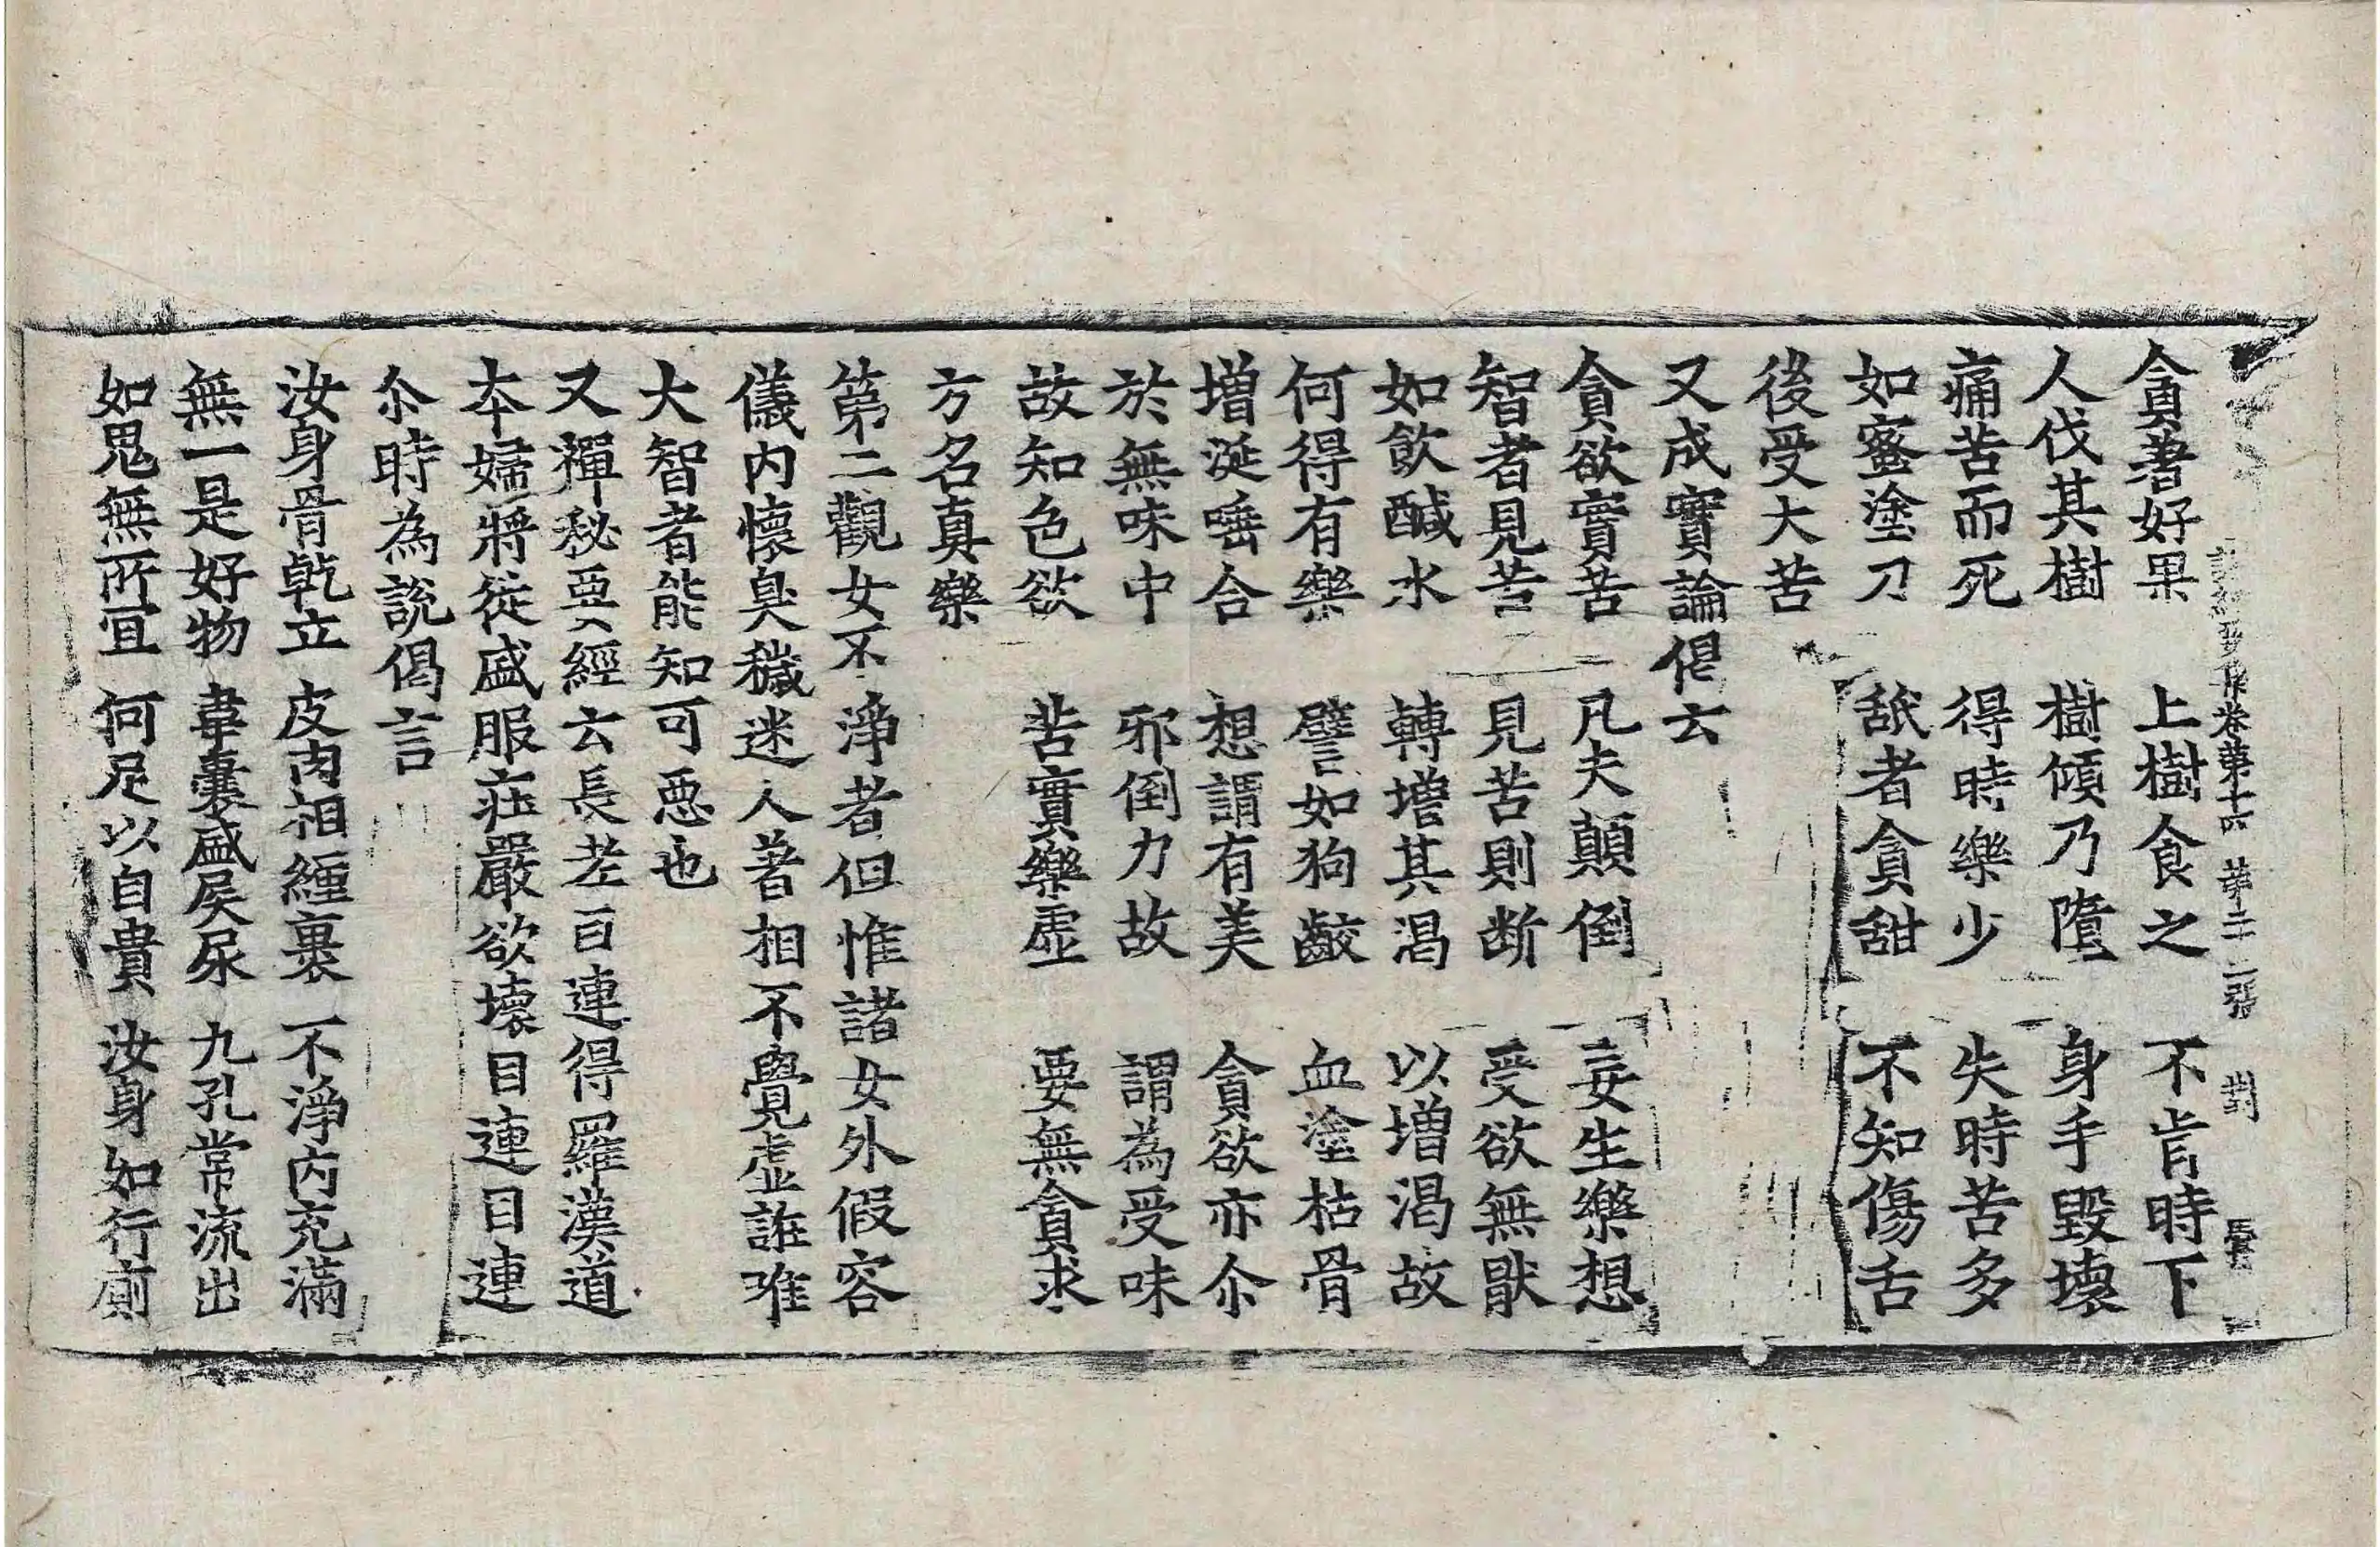 諸經要集卷第十六 第二十二張 對
貪著好果 上樹食之 不肯時下
人伐其樹 樹傾乃墮 身手毀壞
痛苦而死 得時樂少 失時苦多
如蜜塗刀 舐者貪甜 不知傷舌
後受大苦
又成實論偈云
貪欲實苦 凡夫顛倒 妄生樂想
智者見苦 見苦則断 受欲無猒
如飲醎水 轉增其渴 以增渴故
何得有樂 譬如狗齩 血塗枯骨
增涎唾合 想謂有美 貪欲亦尒
於無味中 邪倒力故 謂為受味
故知色欲 苦實樂虛 要無貪求
方名真樂
第二觀女不淨者但惟諸女外假容
儀內懷臭穢迷人著相不覺虛誑唯
大智者能知可惡也
又禪秘要經云長老目連得羅漢道
本婦將從盛服莊嚴欲壞目連目連
尒時為說偈言
汝身骨乾立 皮肉相纏裹 不淨內充滿
無一是好物 韋囊盛屎尿 九孔常流出
如鬼無所宜 何足以自貴 汝身如行廁